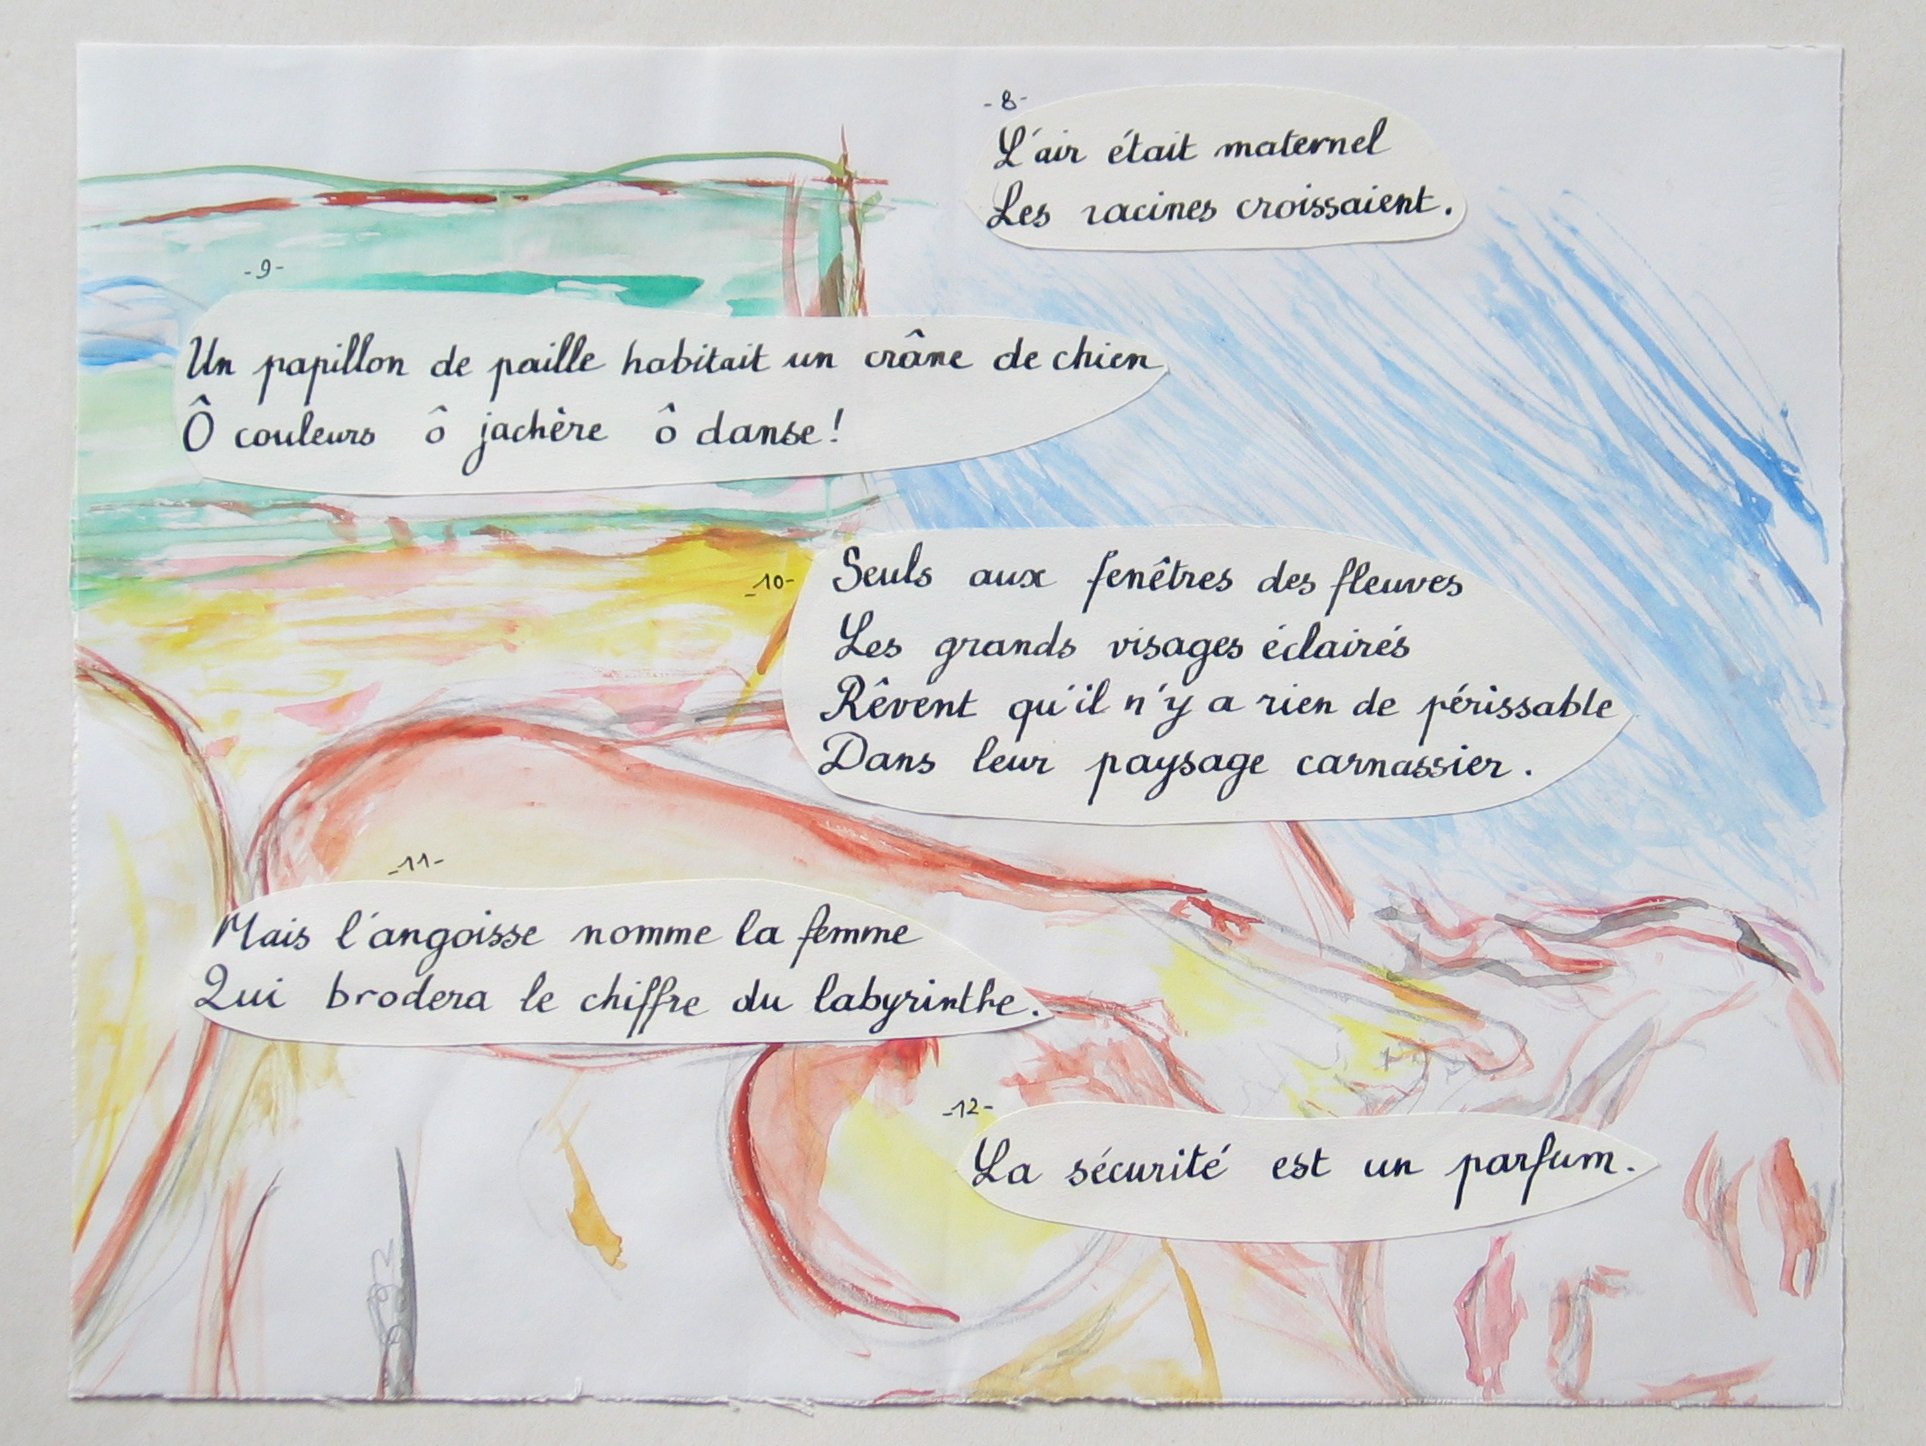 -8-
L'air était maternel
Les racines croissaient.
-9-
Un papillon de paille habitait un crâne de chien
Ô couleurs ô jachère ô danse!
-10-
Seuls aux fenêtres des fleuves
Les grands visages éclairés
Rêvent qu'il n'y a rien de périssable
Dans leur paysage carnassier.
-11-
Mais l'angoisse nomme la femme
Qui brodera le chiffre du labyrinthe.
-12-
La sécurité est un parfum.